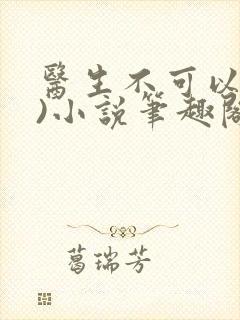 醫生不可以
)小說筆趣閣
葛瑞芳